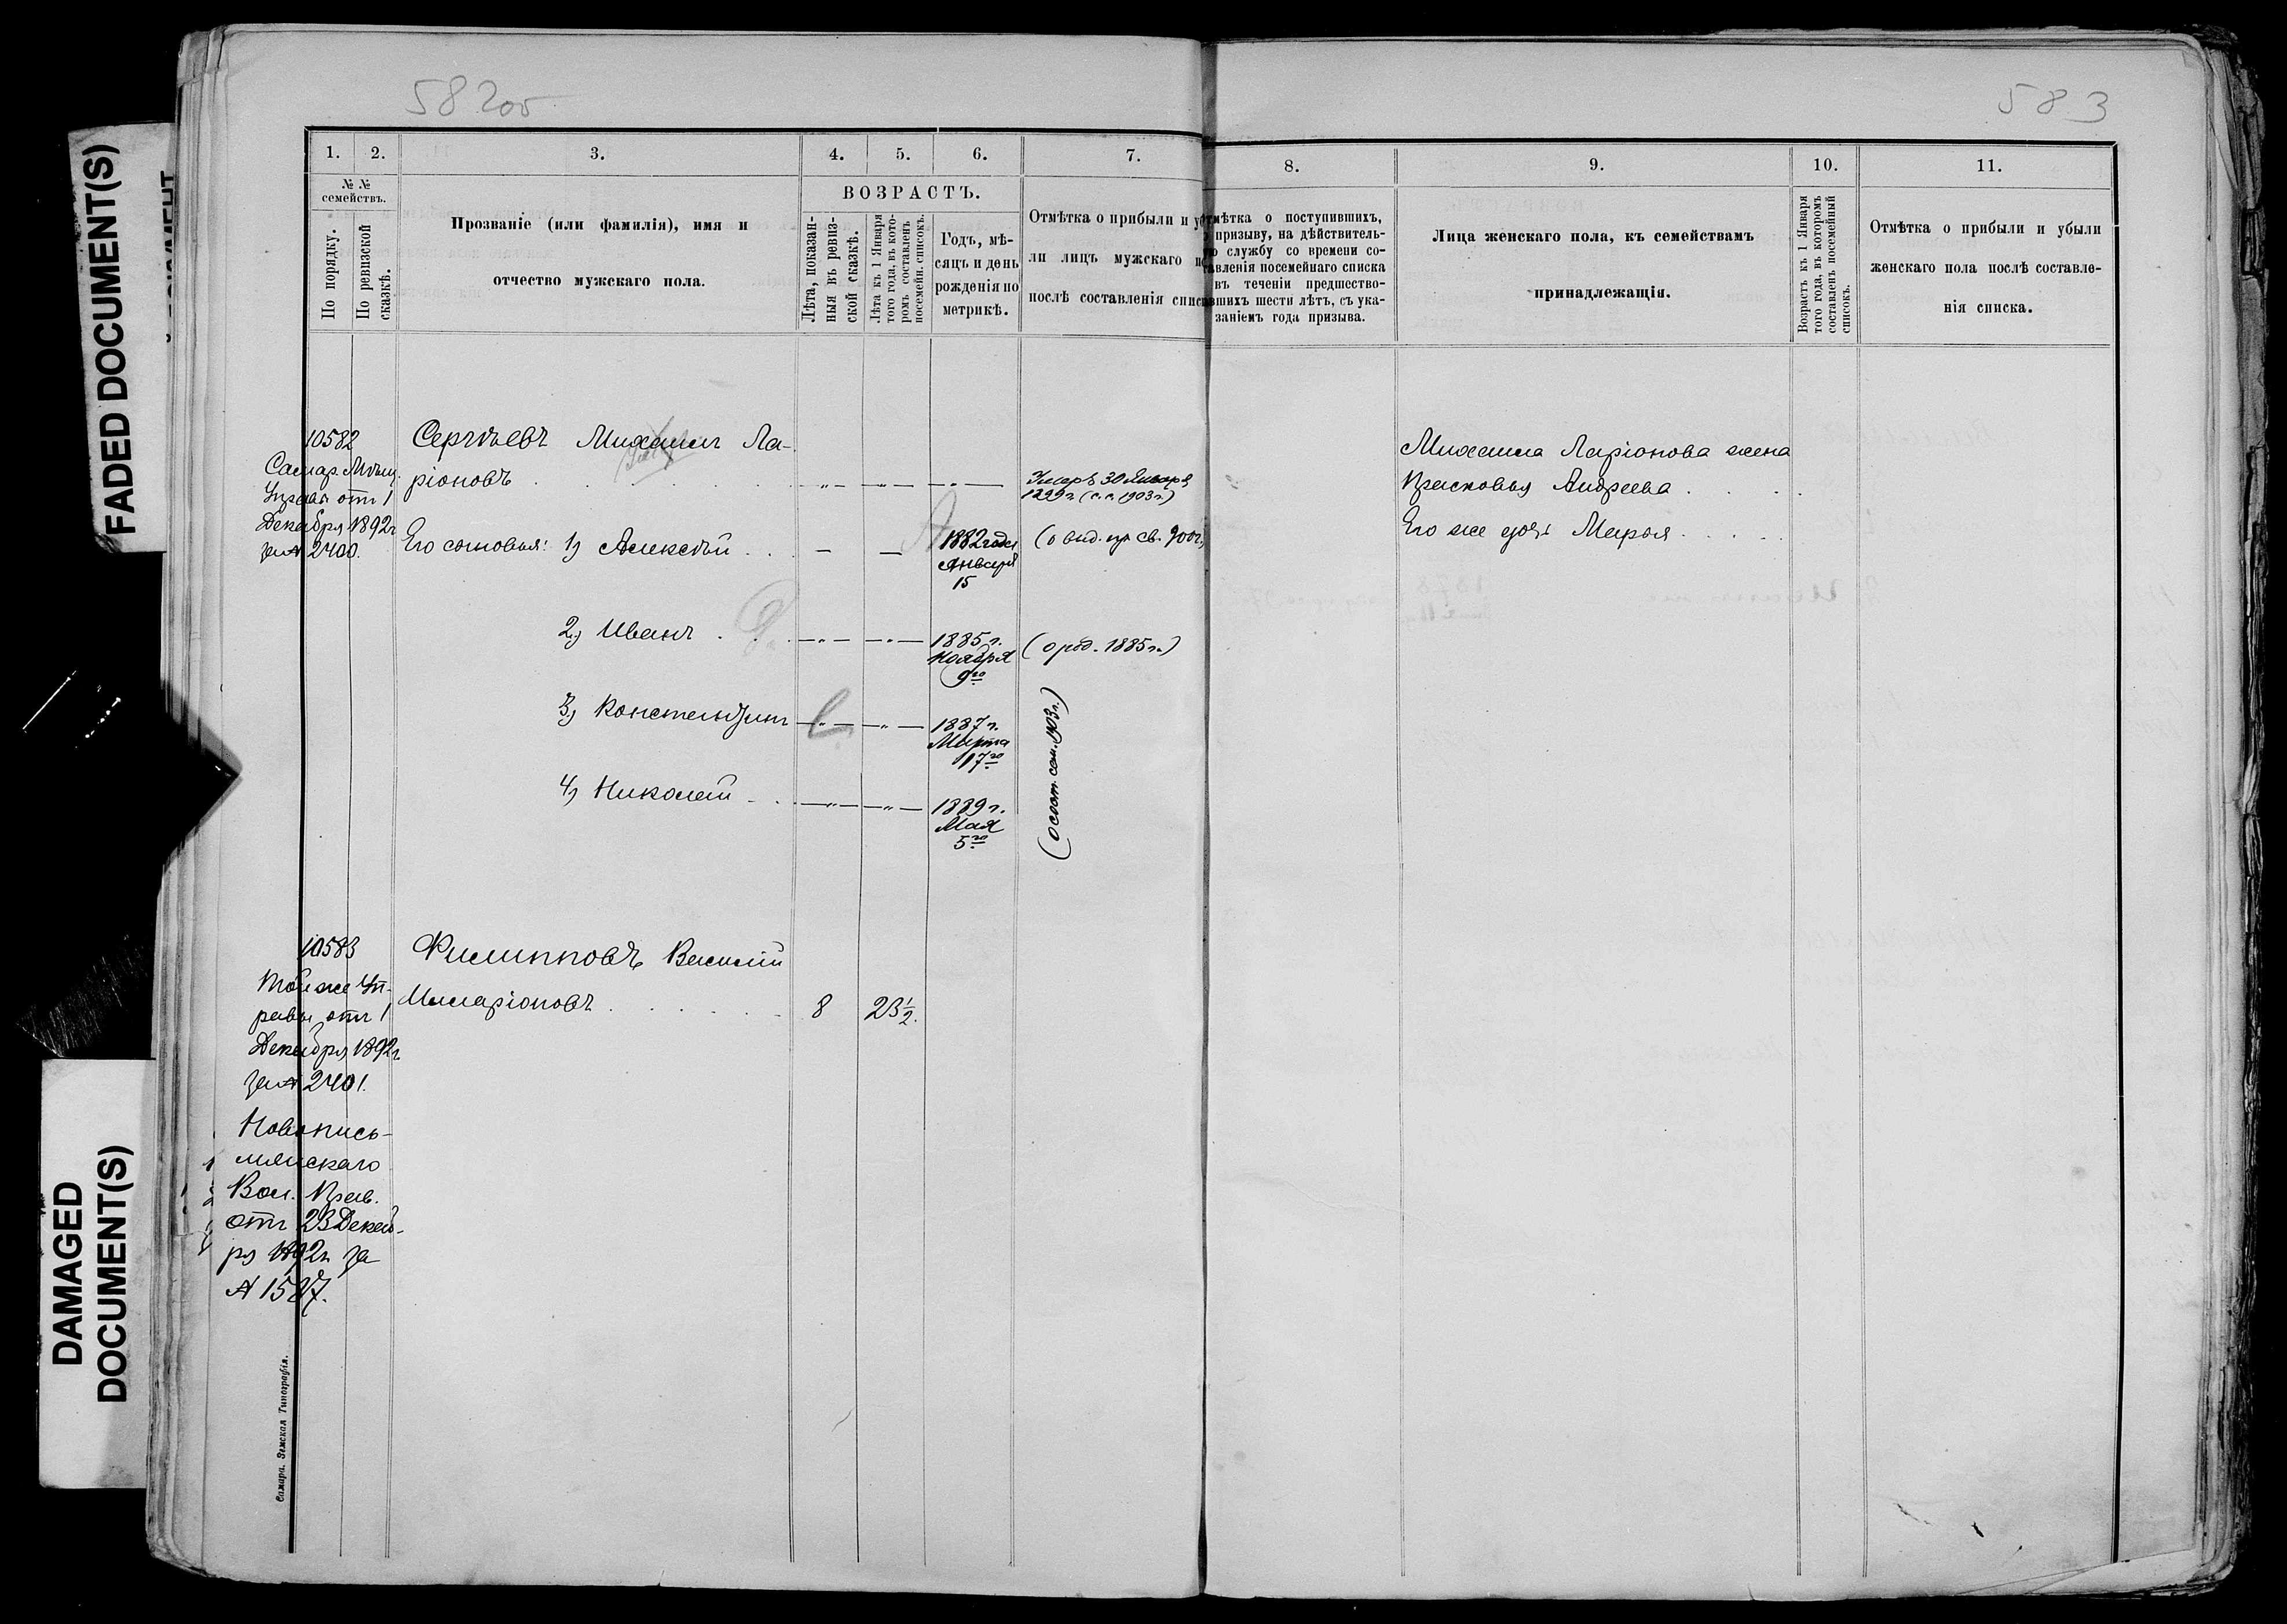 FADED DOCUMENT(S)
DAMAGED
DOCUMENT(S)
58 2об
583
1.
2.
3.
4.
5.
6.
7.
8.
9.
10.
11.
№ №
семействъ.
По порядку.
По ревизской
сказкѣ.
Прозваніе (или фамилія), имя и
отчество мужскаго пола.
ВОЗРАСТЪ.
Лѣта, показан-
ныя въ ревиз-
ской сказкѣ.
Лѣта къ 1 Января
того года, въ кото-
ромъ составленъ
посемейн. списокъ.
Годъ, мѣ-
сяцъ и день
рожденія по
метрикѣ.
Отмѣтка о прибыли и уб
ли лицъ мужскаго по
послѣ составленія списк
тмѣтка о поступившихъ,
призыву, на дѣйствитель-
ую службу со времени со-
тавленія посемейнаго списка
въ теченіи предшество-
вшихъ шести лѣтъ, съ ука-
заніемъ года призыва.
Лица женскаго пола, къ семействамъ
принадлежащія.
Возрастъ къ 1 Января
того года, въ которомъ
составленъ посемейный
списокъ.
Отмѣтка о прибыли и убыли
женскаго пола послѣ составле-
нія списка.
10582
Самар. Мѣщ.
Управ. отъ 1
Декабря 1892г.
за № 2400.
Сергѣевъ Михаилъ Ла-
ріоновъ
Умеръ 30 Января
1899 г. (с. с. 1903 г.)
Его сыновья: 1) Алексѣй
1882 года
Января
15
(о выд. пр. св. 900 г.)
2) Иванъ
1885 г.
Ноября
9го
(о род. 1885 г.)
3) Константинъ
1887 г.
Марта
17го
4) Николай
1889 г.
Мая
5го
(о сост. сем. 1903 г.)
Михаила Ларіонова жена
Прасковья Андреева
Его же дочь Марья
10583
Той же Уп-
равы отъ 1
Декабря 1892г.
за № 2401.
Филипповъ Василій
Иларіоновъ
8
23½.
Новопись-
мянскаго
Вол. Прав.
отъ 23 Декаб-
ря 1892г. за
№ 1527.
Самара. Земская Типографія.